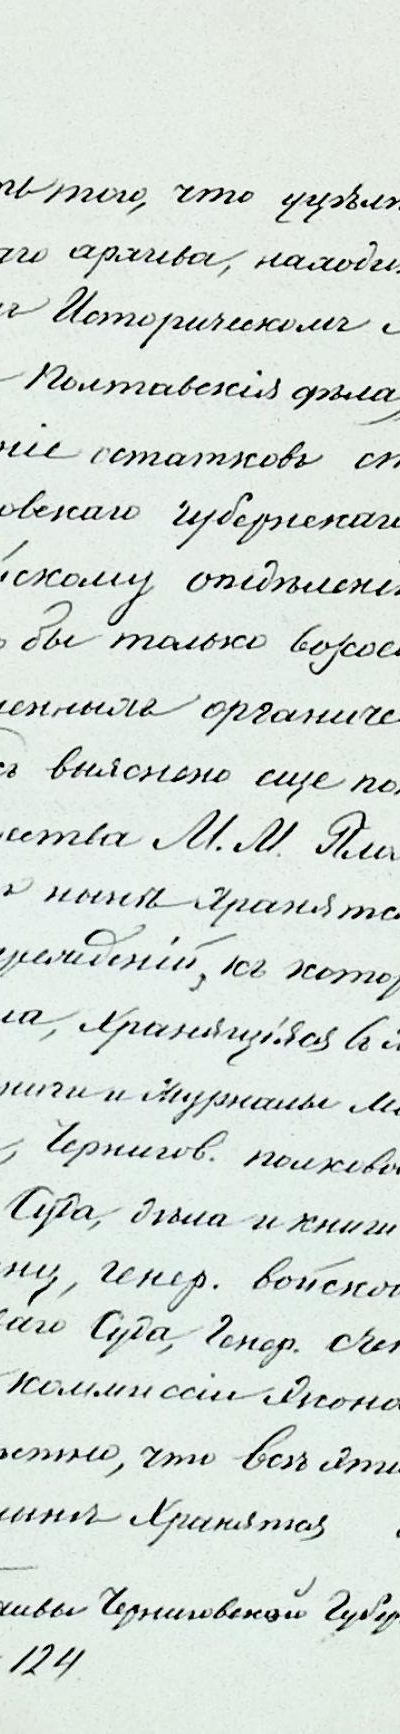 ть того, что уцѣлѣ
аго архива, находи
Историческомъ
Полтавскія дѣла
ніе остатковъ ст
овскаго губернскаго
скому отдѣленію
бы только возсо
ченнымъ органиче
выяснено еще по
ества М. М. Пла
нынѣ хранятся
учрежденій, къ котор
ла, хранящіяся въ
ниги и журналы Ма
, Чернигов. полково
Суда, дѣла и книги
ну, генер. войсков
аго Суда, Генер. Сче
коммиссіи Эконо
что всѣ эти
нынѣ хранятся
хивы Черниговской Губер
124